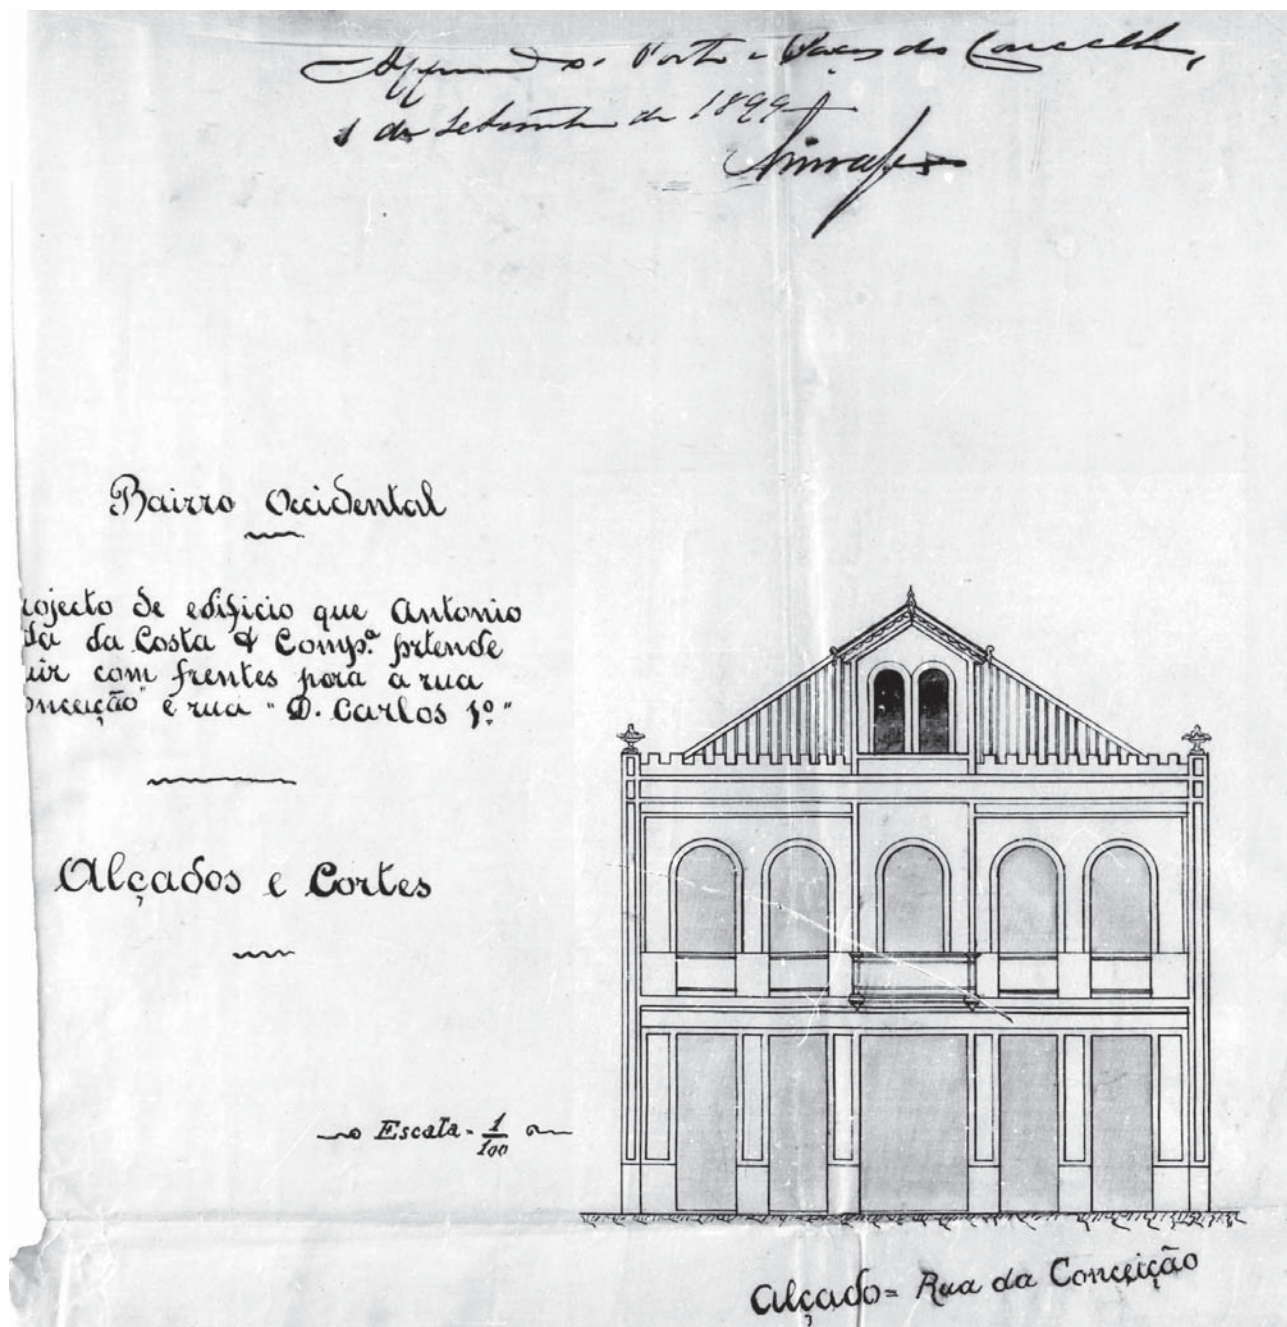 Approvado. Porto e Paços do Concelho,
1 de Setembro de 1899
Bairro Occidental
rojecto de edificio que Antonio
da da Costa & Comp.ª pretende
uir com frentes para a rua
onceição" e rua "D. Carlos 1º."
Alçados e Cortes
Escala = 1/100
Alçado = Rua da Conceição